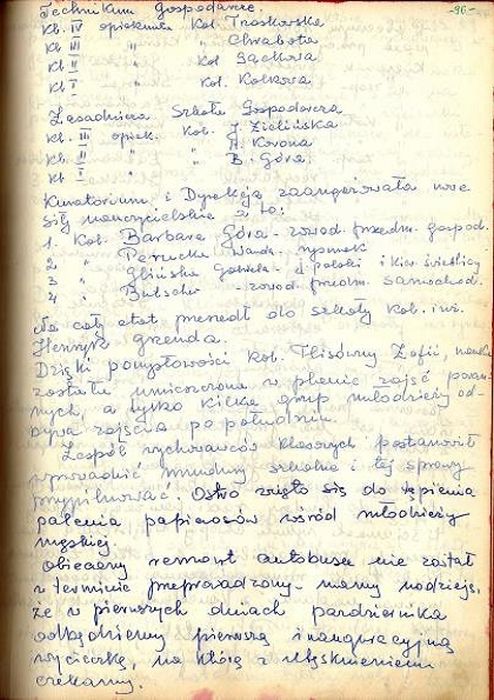 -96-
Technikum Gospodarcze.
Kl. IV opiekunem Kol. Troskowska
Kl III " " Chrabota
Kl II " Kol Sądkowa
Kl I " Kol. Kołkowa
Zasadnicza Szkoła Gospodarcza
Kl. III opiek. Kol. J. Zielińska
Kl II " " A. Korona
Kl I " " B. Góra
Kuratorium i Dyrekcja zaangażowała nowe
siły nauczycielskie a to:
1. Kol. Barbara Góra - zawod. przedm. gospod.
2 " Perucka Wanda - rysunek
3 " Glińska Gabriela - j. polski i kier. świetlicy
4 " - zawod. przedm. samochod.
Na cały etat przeszedł do szkoły Kol. inż.
Henryk Grenda.
Dzięki pomysłowości Kol. Flisówny Zofii, nauka
została umieszczona w planie zajęć poran-
nych, a tylko kilka grup młodzieży od-
bywa zajęcia po południu.
Zespół wychowawców klasowych postanowił
wprowadzić mundury szkolne i tej sprawy
przypilnować. Ostro wzięto się do tępienia
palenia papierosów wśród młodzieży
męskiej.
Obiecany remont autobusu nie został
w terminie przeprowadzony - mamy nadzieję,
że w pierwszych dniach października
odbędziemy pierwszą inauguracyjną
wycieczkę, na którą z utęsknieniem
czekamy.